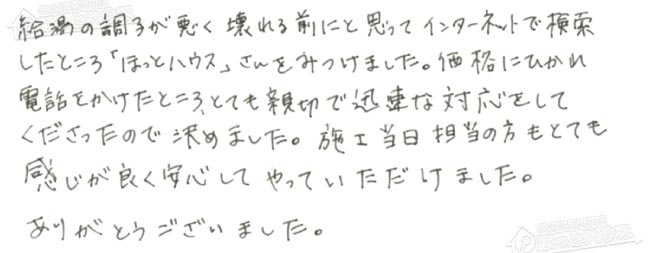 給湯の調子が悪く壊れる前にと思ってインターネットで検索
したところ「ほっとハウス」さんをみつけました。価格にひかれ
電話をかけたところ、とても親切で迅速な対応をして
くださったので決めました。施工当日担当の方もとても
感じが良く安心してやっていただけました。
ありがとうございました。
ほっとハウス